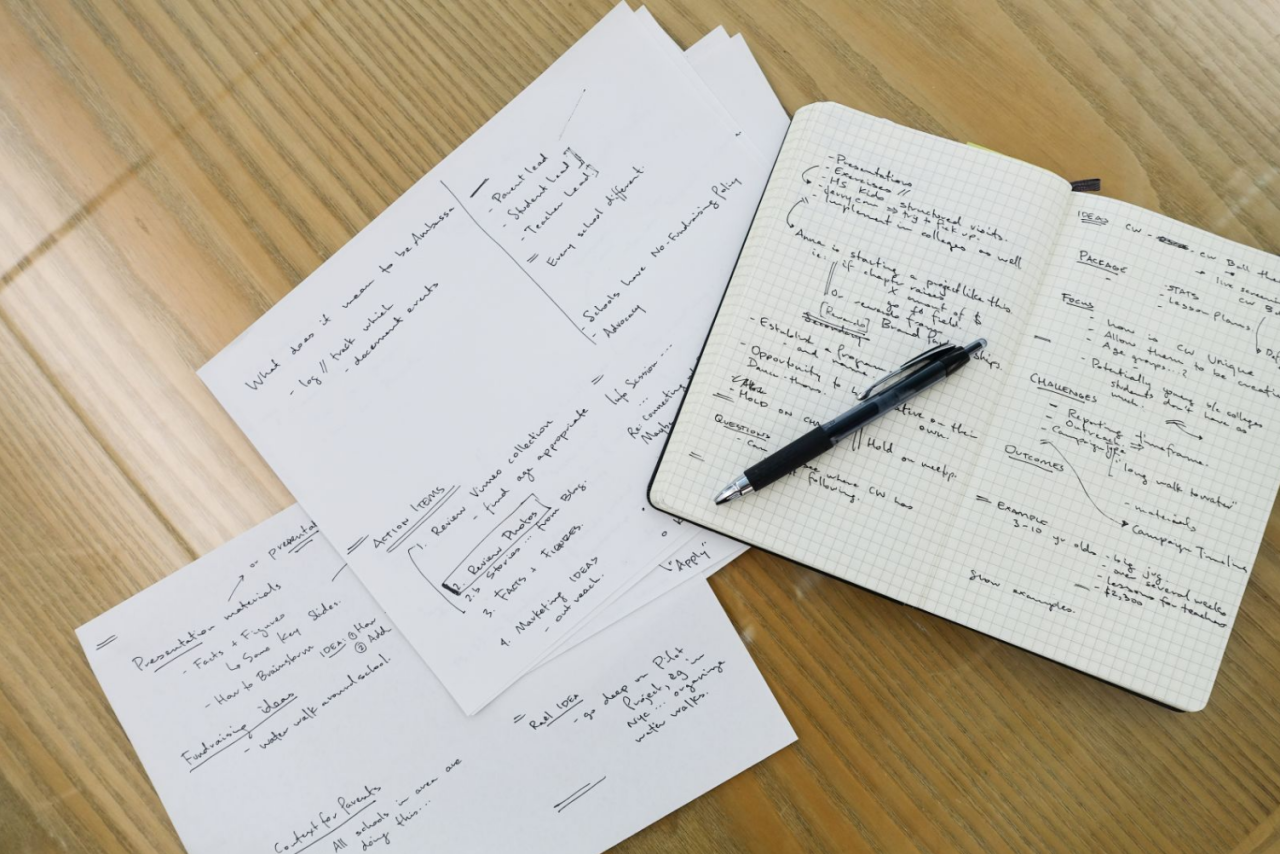 What does it mean to be Ambassa
- log // track which
- document events
- Parent lead
- Student lead
- Teacher lead
Every school different.
- Schools have No-Fundraising Policy
- Advocacy
Info Session ...
...
Re: connecting
ACTION ITEMS
1. Review Vimeo collection
- find age appropriate
2. Review Photos
2.b Stories ... from Blog.
3. FACTS + FIGURES.
4. Marketing IDEAS
- out reach.
"Apply"
or presentat
Presentation materials
- Facts + Figures
↳ Some Key Slides.
- How to Brainstorm IDEA: ① How
② Add
Fundraising ideas
- water walk around school.
Context for Parents
All schools in area are
doing this...
Real IDEA
- go deep on Pilot
Project, eg in
NYC ... organize
water walks.
- Presentations
- Exercises //
- HS Kids structured visits.
- Jerrycan => try to pick up.
- Implement in colleges as well
Anne is starting a project like this
i.e. if chapter raises
X amount of $
go to field.
Or rewards from
[Rwanda] Brand Partnerships.
- Establish a program
- and
- Opportunity to
own.
- HOLD ON
Hold on meetup.
QUESTIONS
- Can see where CW has
following.
IDEAS CW - CW Ball
→ live
PACKAGE
- STATS
- Lesson Plans
FOCUS
- how is CW Unique
- Allow them to be creati
- Age groups...?
- Potentially young b/c colleges
students don't have as
much.
CHALLENGES
- Reporting timeframe.
- Outreach =>
- Campaign
"long walk to water"
- materials
OUTCOMES
Campaign Timeline
= EXAMPLE
3-10 yr olds - big jug
- over several weeks
- Lessons for teachers
- $2,300
Show examples.